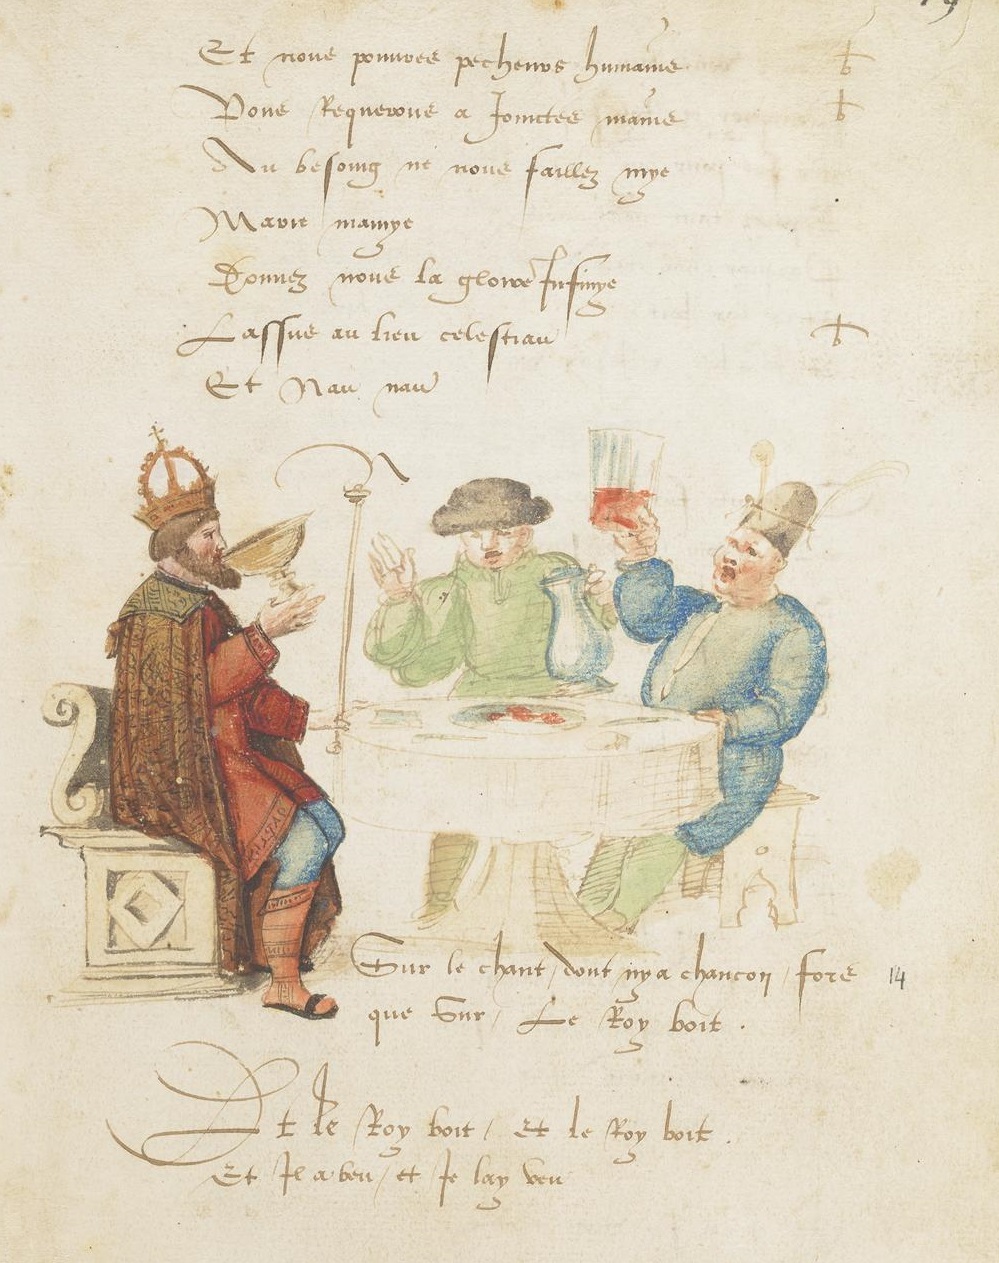 Et nous pouvres pecheurs humains
Vous Requerons a Joinctes mains
Au besoing ne nous faillez mye
Marie mamye
Donnez nous la gloire Infinye
Lassus au lieu celestiau
Et Nau nau
Sur le chant, dont ny a chancon, fors 14
que Sur, Le Roy boit.
Et le Roy boit, Et le Roy boit.
Et Il a beu, et Je lay veu